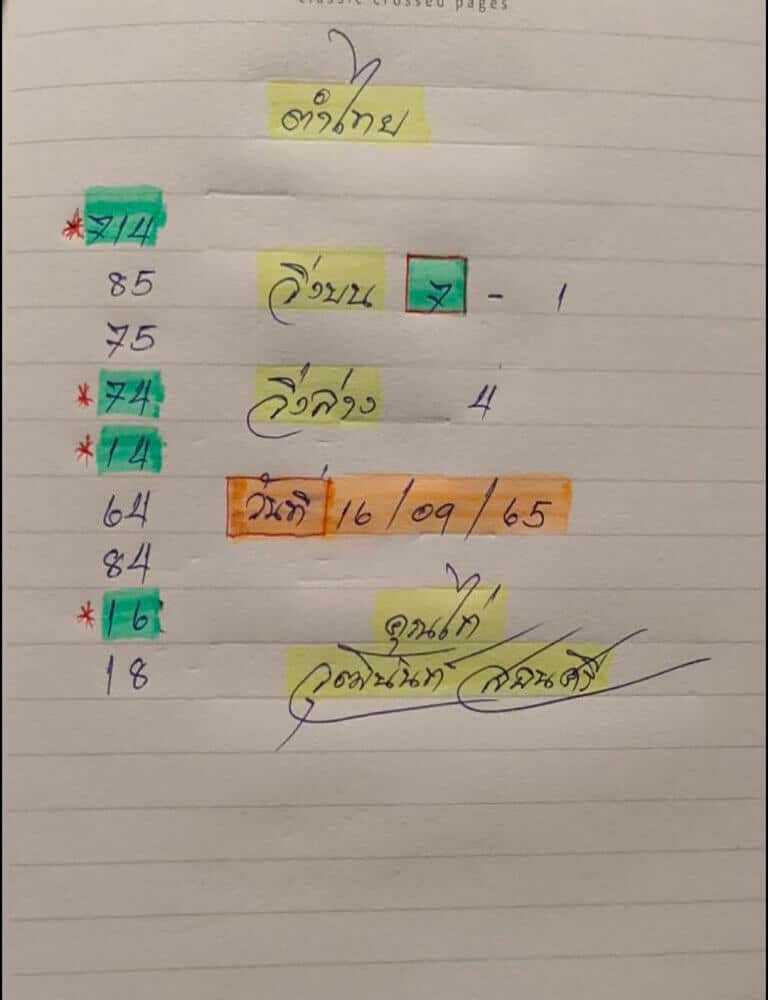 classic crossed pages
ตำไทย
*714
85 วิ่งบน 7 - 1
75
*74 วิ่งล่าง 4
*14
64 วันที่ 16/09/65
84
*16 คุณไก่
18